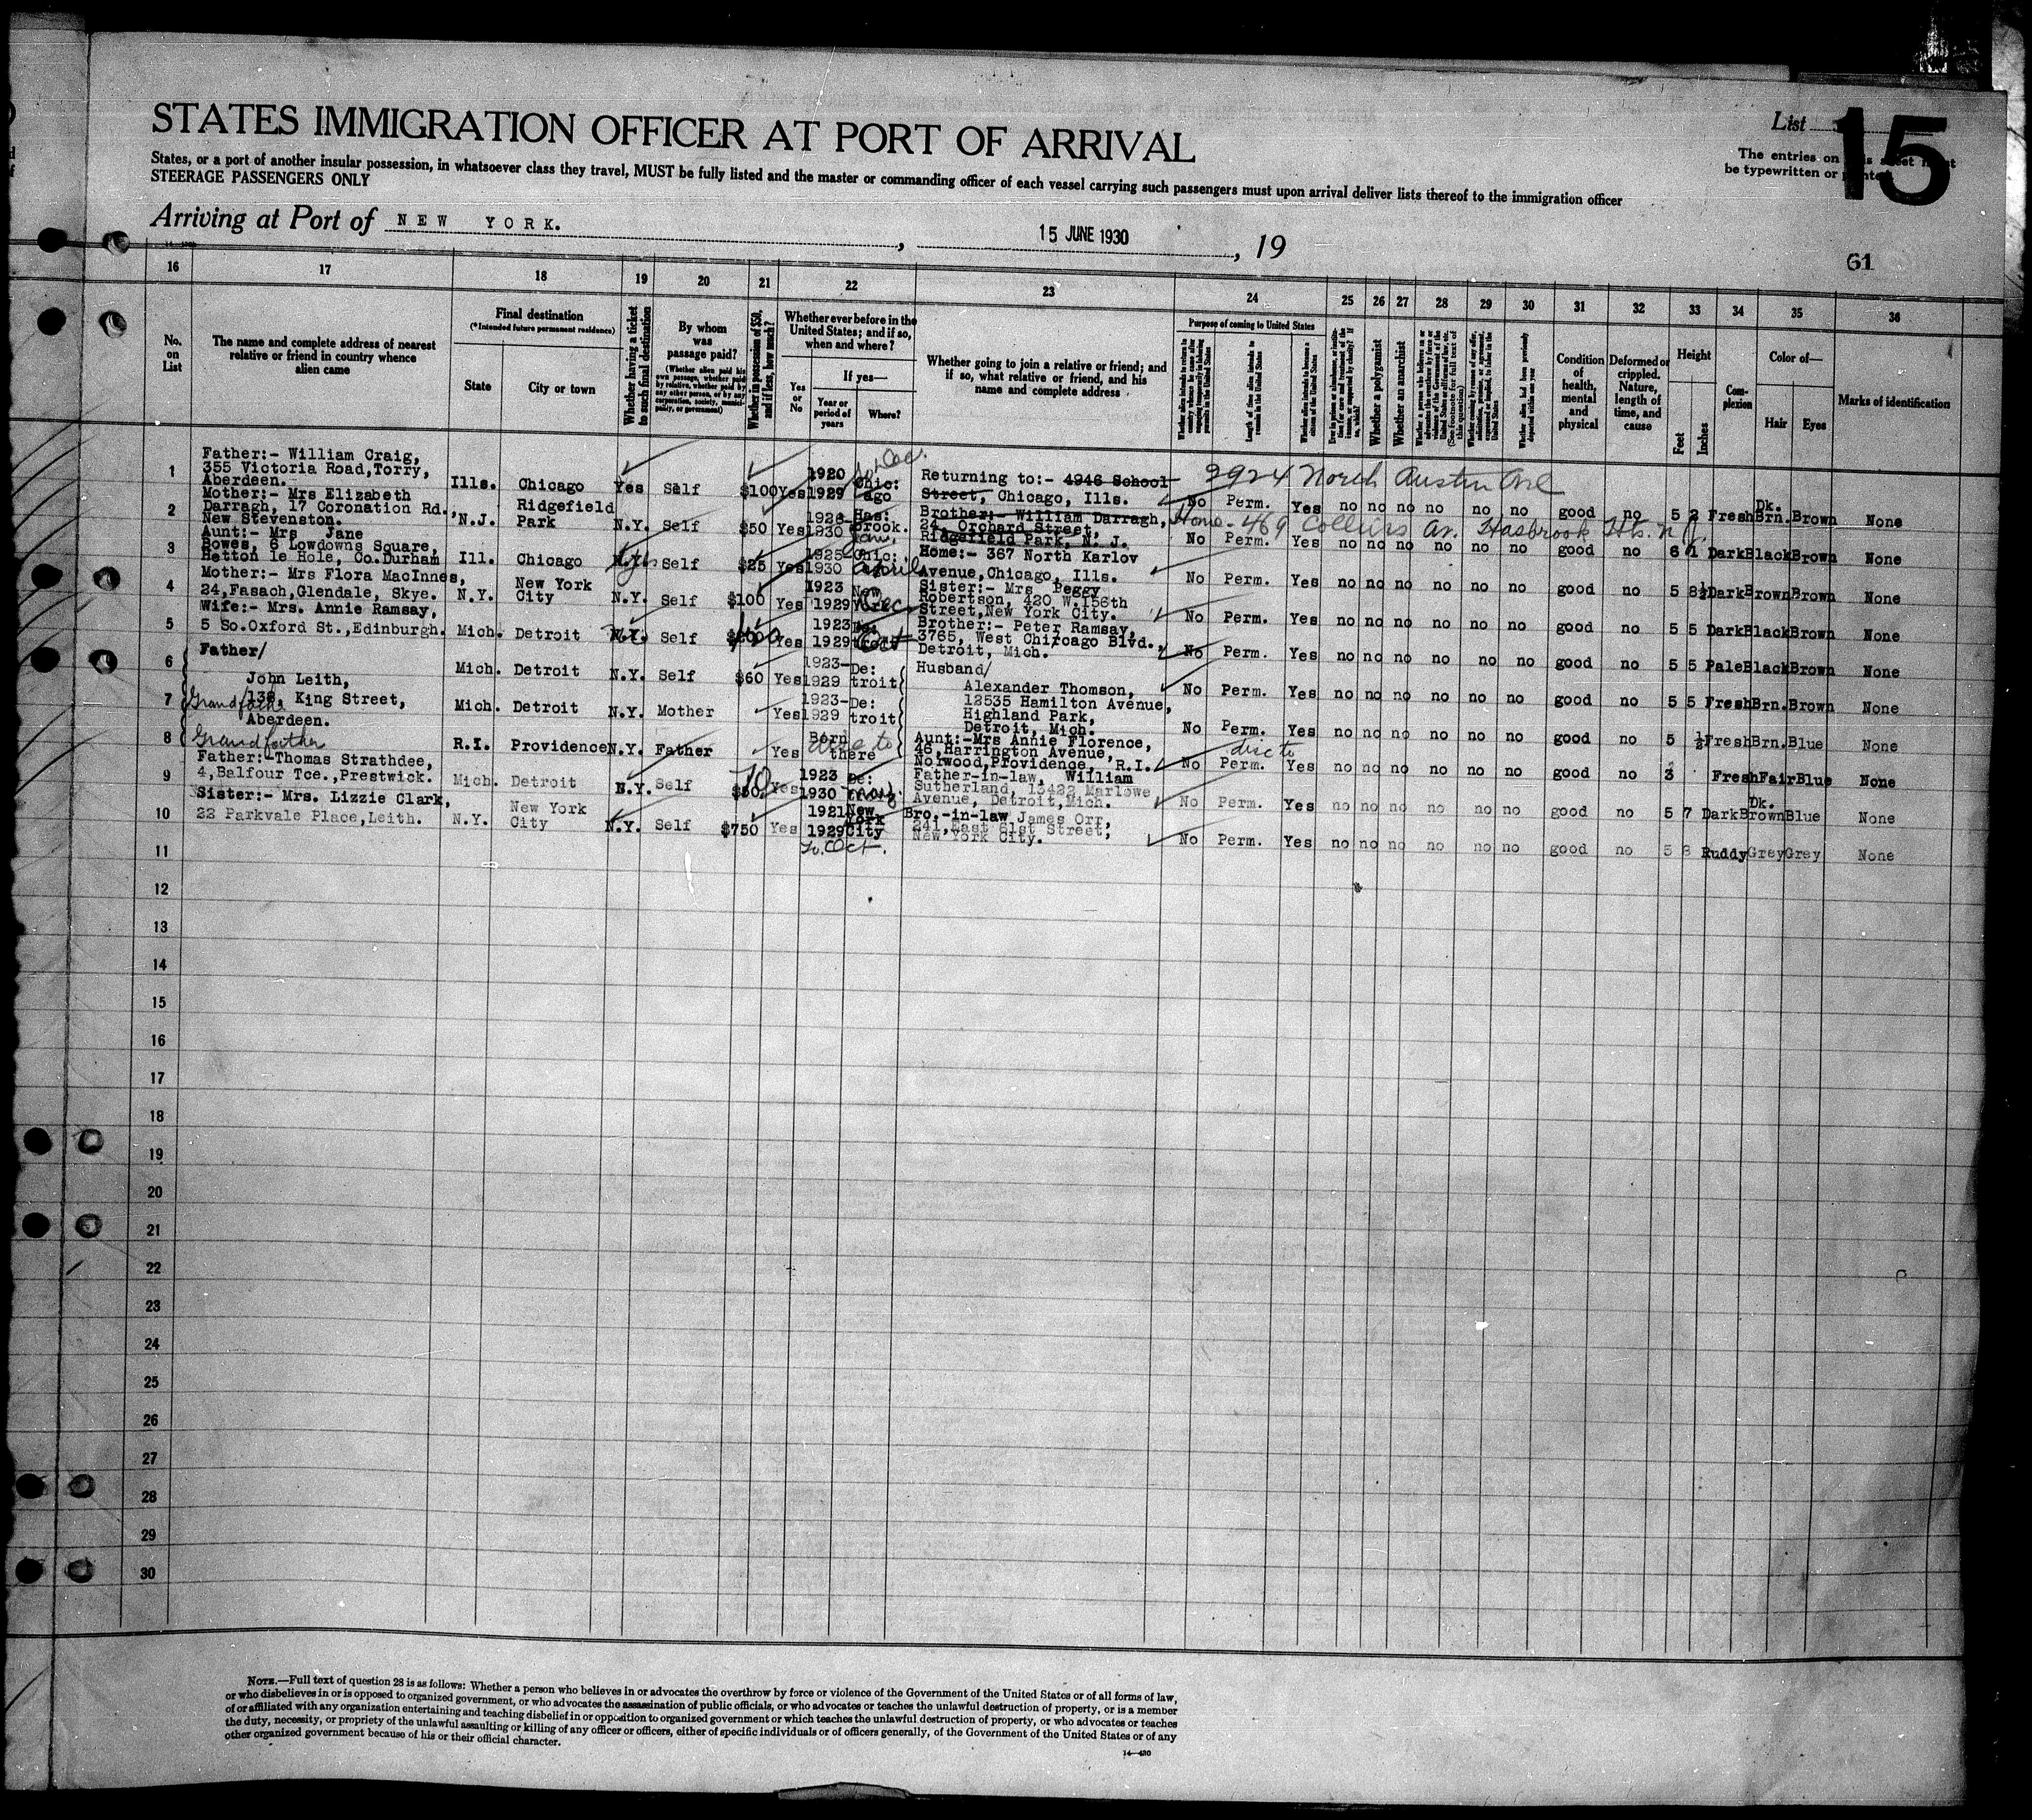 STATES IMMIGRATION OFFICER AT PORT OF ARRIVAL
List
15
States, or a port of another insular possession, in whatsoever class they travel, MUST be fully listed and the master or commanding officer of each vessel carrying such passengers must upon arrival deliver lists thereof to the immigration officer
STEERAGE PASSENGERS ONLY
The entries on
be typewritten or
Arriving at Port of NEW YORK. , 15 JUNE 1930 , 19
61
16 17 18 19 20 21 22 23 24 25 26 27 28 29 30 31 32 33 34 35 36
No. on List
The name and complete address of nearest relative or friend in country whence alien came
Final destination
(*Intended future permanent residence)
State
City or town
Whether having a ticket to such final destination
By whom was passage paid?
Whether in possession of $50, and if less, how much?
Whether ever before in the United States; and if so, when and where?
Yes or No
If yes—
Year or period of years
Where?
Whether going to join a relative or friend; and if so, what relative or friend, and his name and complete address
Purpose of coming to United States
Length of time alien intends to remain in the United States
Whether alien intends to become a citizen of the United States
Whether a polygamist
Whether an anarchist
Condition of health, mental and physical
Deformed or crippled. Nature, length of time, and cause
Height
Feet
Inches
Com-plexion
Color of—
Hair
Eyes
Marks of identification
1
Father:- William Craig,
355 Victoria Road,Torry,
Aberdeen.
Ills. Chicago Yes Self $100 Yes 1920 1929 Chic: ago
Dec.
Returning to:- 4946 School
Street, Chicago, Ills.
3924 North Austin Ave
No Perm. Yes no no no no no no good no 5 2 Fresh Dk. Brn. Brown None
2
Mother:- Mrs Elizabeth
Darragh, 17 Coronation Rd.,
New Stevenston.
N.J. Ridgefield Park N.Y. Self $50 Yes 1926- 1930 Has: brook.
Jan.
Brother:- William Darragh,
24, Orchard Street,
Ridgefield Park, N. J.
Home - 469 Collins Av. Hasbrook Hts. N.J.
No Perm. Yes no no no no no no good no 6 1 Dark Black Brown None
3
Aunt:- Mrs Jane
Bowes, 6 Lowdowns Square,
Hetton le Hole, Co.Durham
Ill. Chicago N.Y. Self $25 Yes 1925 1930 Chic:
April
Home:- 367 North Karlov
Avenue,Chicago, Ills.
No Perm. Yes no no no no no no good no 5 8½ Dark Brown Brown None
4
Mother:- Mrs Flora MacInnes,
24,Fasach,Glendale, Skye.
N.Y. New York City N.Y. Self $100 Yes 1923 1929 New York
Dec
Sister:- Mrs Peggy
Robertson, 420 W.156th
Street,New York City.
No Perm. Yes no no no no no no good no 5 5 Dark Black Brown None
5
Wife:- Mrs. Annie Ramsay,
5 So.Oxford St.,Edinburgh.
Mich. Detroit N.Y. Self Yes 1923 1929 De: troit
Oct
Brother:- Peter Ramsay,
3765, West Chircago Blvd.,
Detroit, Mich.
No Perm. Yes no no no no no no good no 5 5 Pale Black Brown None
6
Father/
John Leith,
138, King Street,
Aberdeen.
Mich. Detroit N.Y. Self $60 Yes 1923- 1929 De: troit
Husband/
Alexander Thomson,
12535 Hamilton Avenue,
Highland Park,
Detroit, Mich.
No Perm. Yes no no no no no no good no 5 5 Fresh Brn. Brown None
7
Grandfather
Mich. Detroit N.Y. Mother Yes 1923- 1929 De: troit
No Perm. Yes no no no no no no good no 5 ½ Fresh Brn. Blue None
8
Grandfather
R.I. Providence N.Y. Father Yes Born there
Aunt:-Mrs Annie Florence,
46,Harrington Avenue,
Norwood,Providence, R.I.
No Perm. Yes no no no no no no good no 3 Fresh Fair Blue None
9
Father:-Thomas Strathdee,
4,Balfour Tce.,Prestwick.
Mich. Detroit N.Y. Self 70 Yes 1923 1930 De:
Father-in-law, William
Sutherland, 13422 Marlowe
Avenue, Detroit,Mich.
No Perm. Yes no no no no no no good no 5 7 Dark Dk. Brown Blue None
10
Sister:- Mrs. Lizzie Clark,
22 Parkvale Place,Leith.
N.Y. New York City N.Y. Self $750 Yes 1921 1929 New York City
to Oct.
Bro.-in-law James Orr,
241,East 61st Street,
New York City.
No Perm. Yes no no no no no no good no 5 8 Ruddy Grey Grey None
11
12
13
14
15
16
17
18
19
20
21
22
23
24
25
26
27
28
29
30
NOTE.—Full text of question 28 is as follows: Whether a person who believes in or advocates the overthrow by force or violence of the Government of the United States or of all forms of law,
or who disbelieves in or is opposed to organized government, or who advocates the assassination of public officials, or who advocates or teaches the unlawful destruction of property, or is a member
of or affiliated with any organization entertaining and teaching disbelief in or opposition to organized government or which teaches the unlawful destruction of property, or who advocates or teaches
the duty, necessity, or propriety of the unlawful assaulting or killing of any officer or officers, either of specific individuals or of officers generally, of the Government of the United States or of any
other organized government because of his or their official character.
14—430